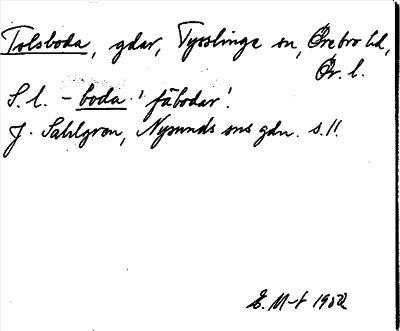 Tolsboda, gdar, Tysslinge sn, Örebro hd,
Ör. l.
S. l. - boda 'fäbodar'.
J. Sahlgren, Nysunds sns gdn. s. 11.
E. M-t 1952